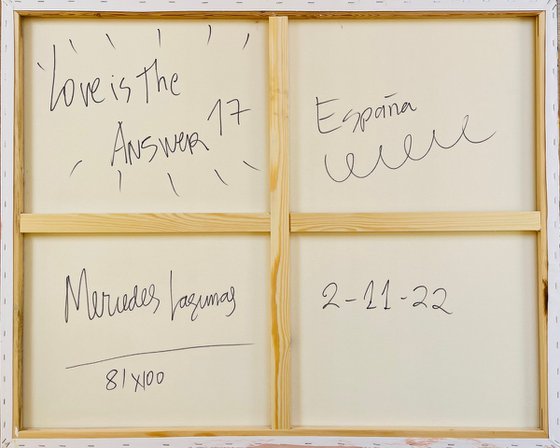 Love is the
Answer 17
España
Mercedes Lagunas
81x100
2-11-22